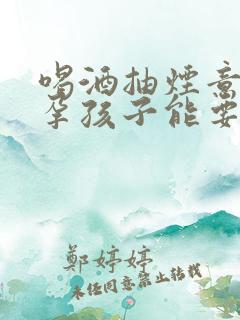 喝酒抽煙意
孕孩子能要
鄭婷婷
未经同意禁止转载